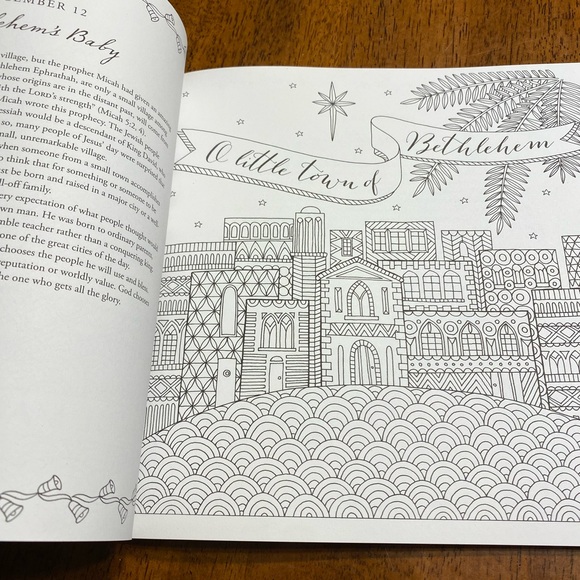 CEMBER 12
ehem's Baby
village, but the prophet Micah had given an
hlehem Ephrathah, are only a small village
whose origins are in the distant past, will come
th the LORD's strength" (Micah 5:2, 4).
Micah wrote this prophecy. The Jewish people
essiah would be a descendant of King David,
so, many people of Jesus' day were surprised that
mall, unremarkable village.
when someone from a small town accomplishes
to think that for something or someone to be
st be born and raised in a major city or a
ll-off family.
ery expectation of what people thought
own man. He was born to ordinary parents,
mble teacher rather than a conquering king,
one of the great cities of the day.
chooses the people he will use and bless
reputation or worldly value. God chooses
he one who gets all the glory.
O little town of
Bethlehem